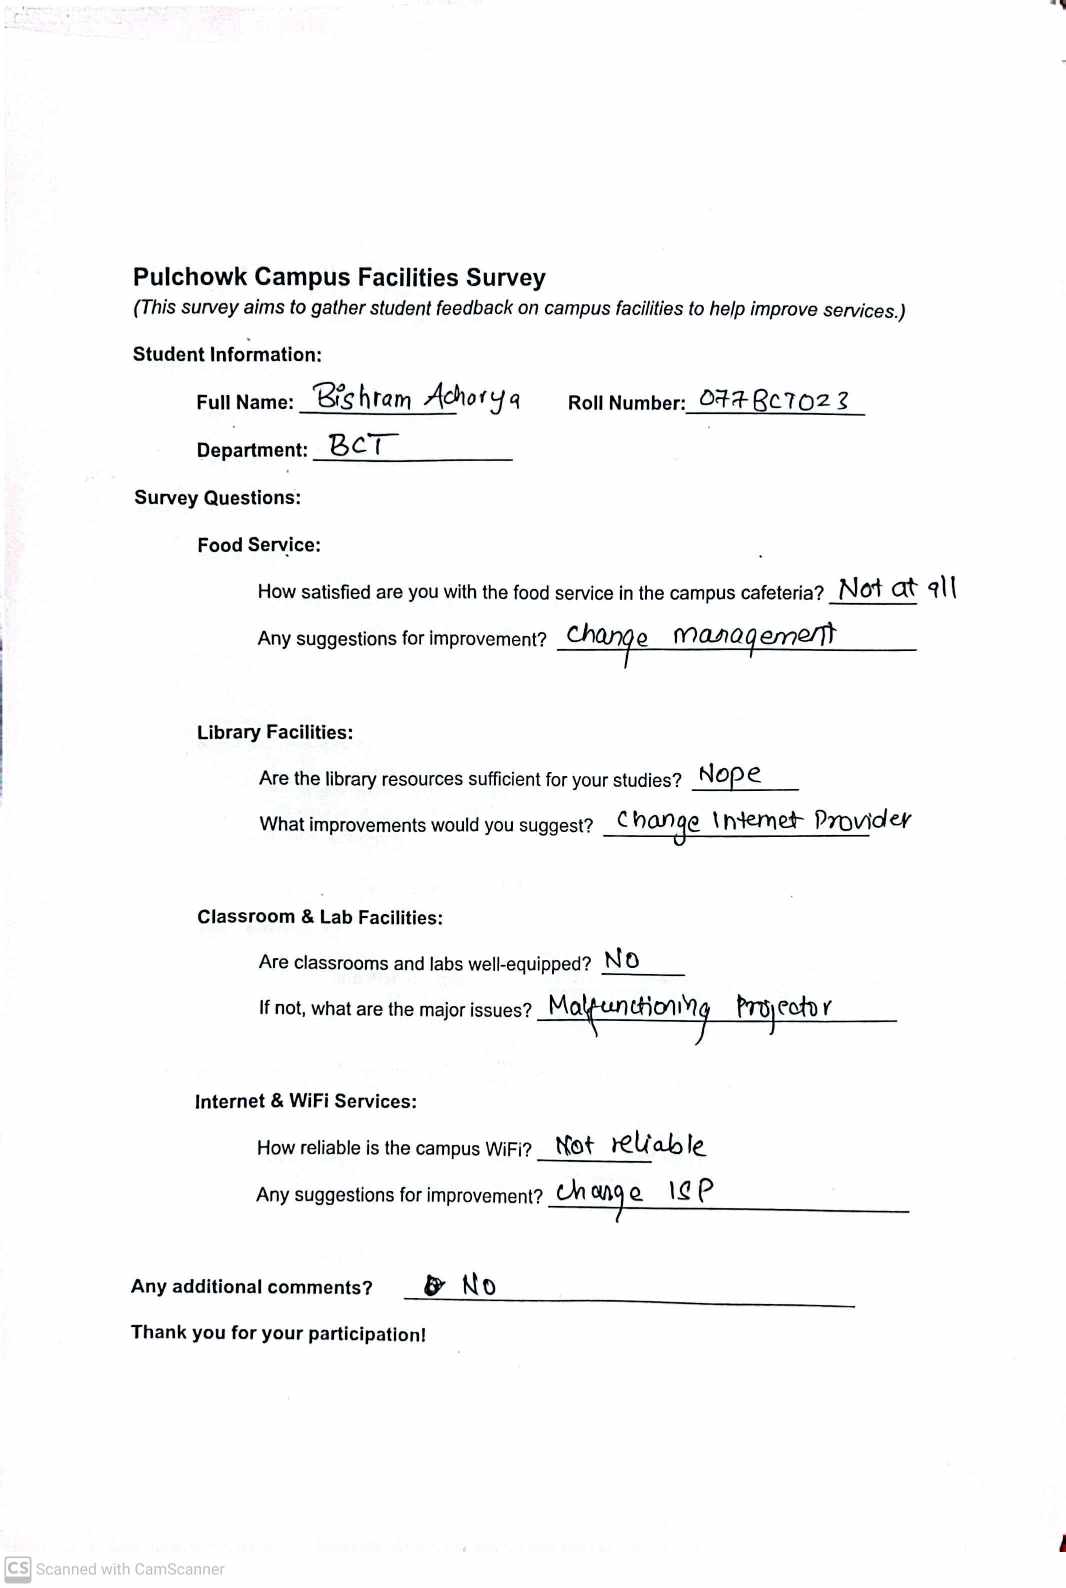 Pulchowk Campus Facilities Survey
(This survey aims to gather student feedback on campus facilities to help improve services.)
Student Information:
Full Name: Bishram Achorya Roll Number: 077BCT023
Department: BCT
Survey Questions:
Food Service:
How satisfied are you with the food service in the campus cafeteria? Not at all
Any suggestions for improvement? Change management
Library Facilities:
Are the library resources sufficient for your studies? Nope
What improvements would you suggest? Change Internet Provider
Classroom & Lab Facilities:
Are classrooms and labs well-equipped? NO
If not, what are the major issues? Malfunctioning Projector
Internet & WiFi Services:
How reliable is the campus WiFi? Not reliable
Any suggestions for improvement? Change ISP
Any additional comments? NO
Thank you for your participation!
CS Scanned with CamScanner